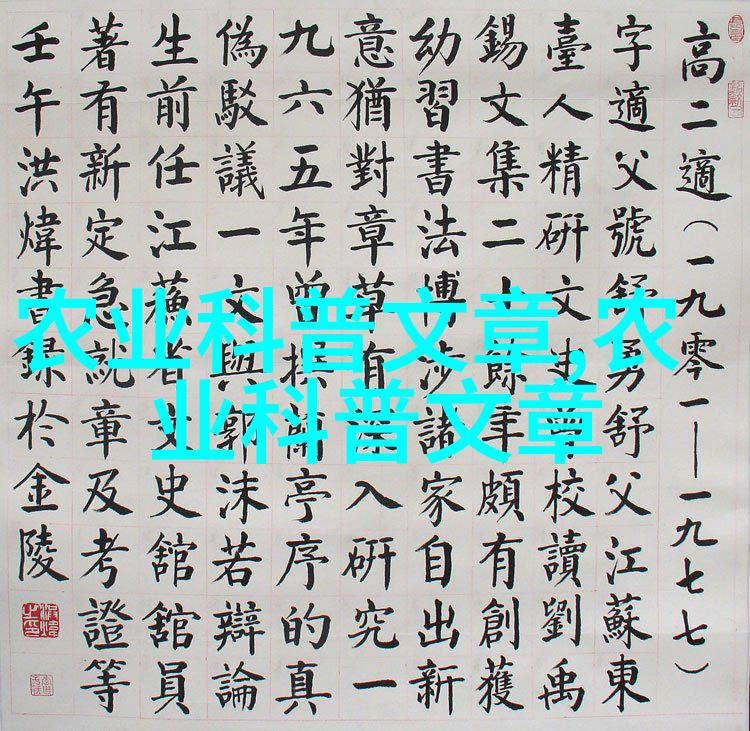 高二適（一九零一——一九七七）
字適父號舒勇舒父江蘇東
臺人精研文史曾校讀劉禹
錫文集二十餘年頗有創獲
幼習書法博涉諸家自出新
意猶對章草有深入研究一
九六五年曾撰蘭亭序的真
偽駁議一文與郭沫若辯論
生前任江蘓省文史舘舘員
著有新定急就章及考證等
壬午洪煒書錄於金陵
农业科普文章,农
业科普文章